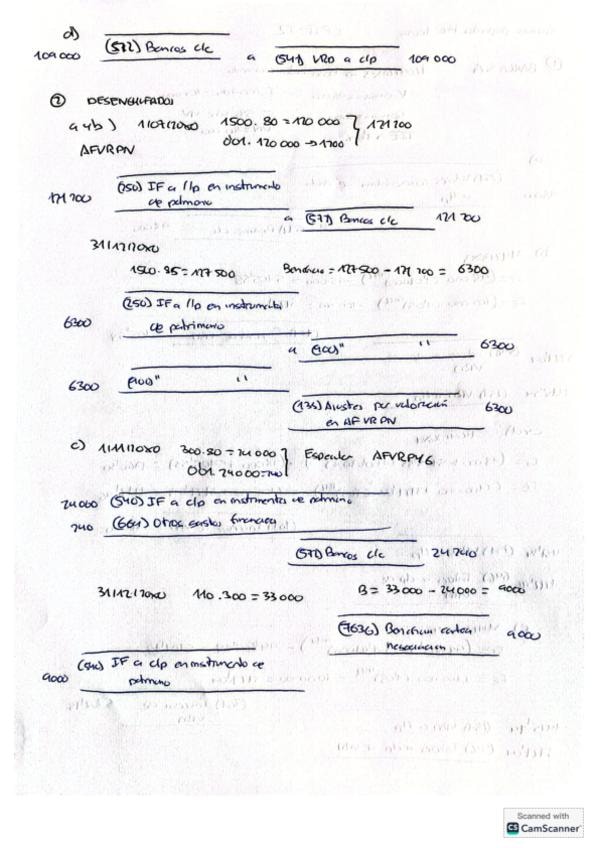 d)
109000 (572) Bancos c/c a (541) VRD a c/p 109000
② DESENCHUFADOS
a y b) 1/07/20x0 1500. 80 = 120 000
AFVRPN 0'01. 120 000 → 1200 } 121 200
121 200 (250) IF a l/p en instrumento de patrimonio
a (572) Bancos c/c 121 200
31/12/20x0
1500. 85 = 127 500 Beneficio = 127 500 - 121 200 = 6300
6300 (250) IF a l/p en instrumento
de patrimonio
a (900) " " 6300
6300 (900) " "
(133) Ajustes por valoración 6300
en AFVRPN
c) 1/11/20x0 300. 80 = 24 000 Especular AFVRPYG
0'01. 24000 = 240
24000 (540) IF a c/p en instrumentos de patrimonio
240 (669) Otros gastos financieros
(572) Bancos c/c 24 240
31/12/20x0 110. 300 = 33 000 B = 33 000 - 24 000 = 9000
(7630) Beneficios cartera 9000
negociación
9000 (540) IF a c/p en instrumento de
patrimonio
Scanned with
CS CamScanner